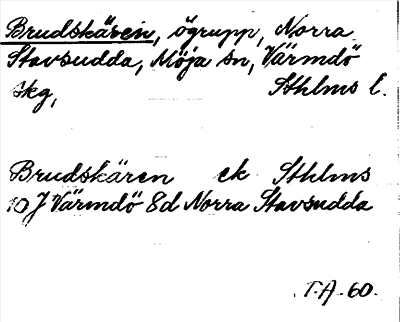 Brudskären, ögrupp, Norra
Stavsudda, Möja sn, Värmdö
skg, Sthlms l.
Brudskären ek Sthlms
10 J Värmdö 8d Norra Stavsudda
T.A. 60.